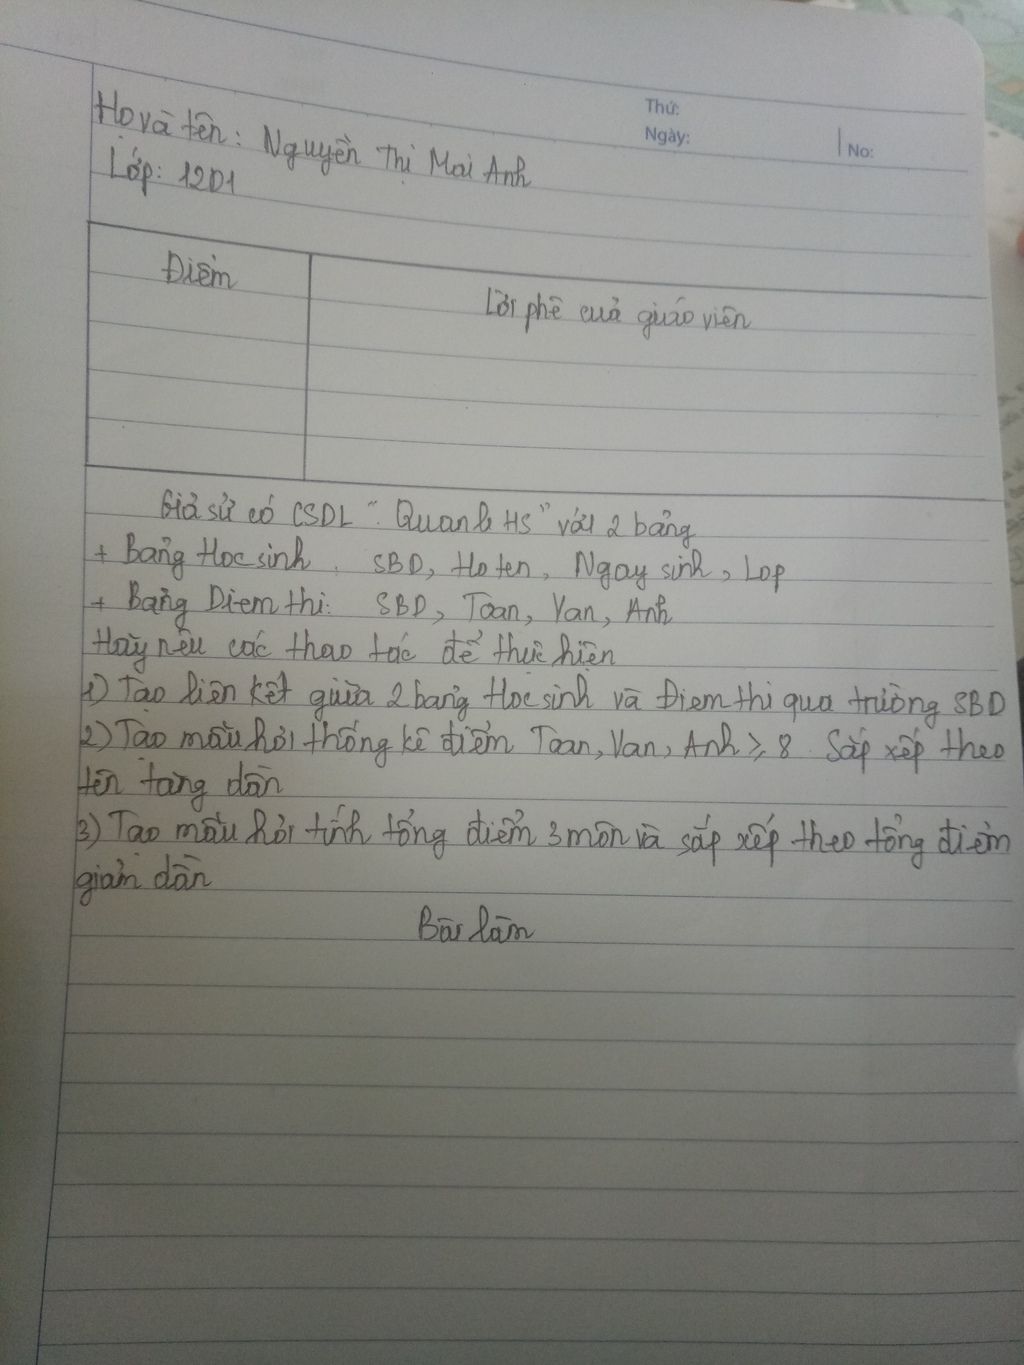 Thứ:
Ngày:
No:
Họ và tên: Nguyễn Thị Mai Anh
Lớp: 12D1
Điểm
Lời phê cuả giáo viên
Giả sử có CSDL "Quanli HS" với 2 bảng
+ Bảng Hocsinh: SBD, Hoten, Ngaysinh, Lop
+ Bảng Diemthi: SBD, Toan, Van, Anh
Hãy nêu các thao tác để thực hiện
1) Tạo liên kết giữa 2 bảng Hocsinh và Điemthi qua trường SBD
2) Tạo mẫu hỏi thống kê điểm Toan, Van, Anh ≥ 8. Sắp xếp theo
tên tăng dần
3) Tạo mẫu hỏi tính tổng điểm 3 môn và sắp xếp theo tổng điểm
giảm dần
Bài làm